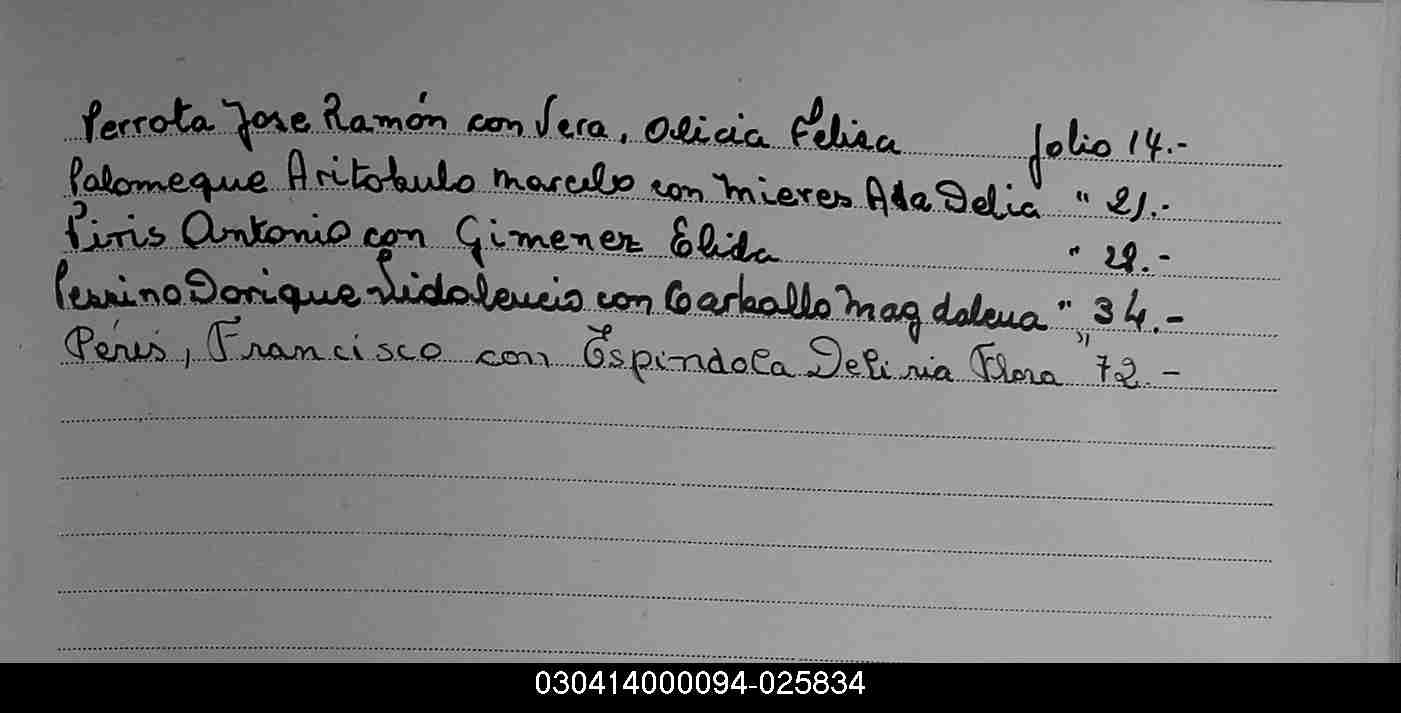 Perrota Jose Ramón con Vera, Alicia Felisa folio 14.-
Palomeque Aritobulo Marcelo con Mieres Ada Delia " 21.-
Piris Antonio con Gimenez Elida " 28.-
con Carballo Magdalena " 34.-
Péris, Francisco con Espindola Deliria Flora " 72.-
030414000094-025834